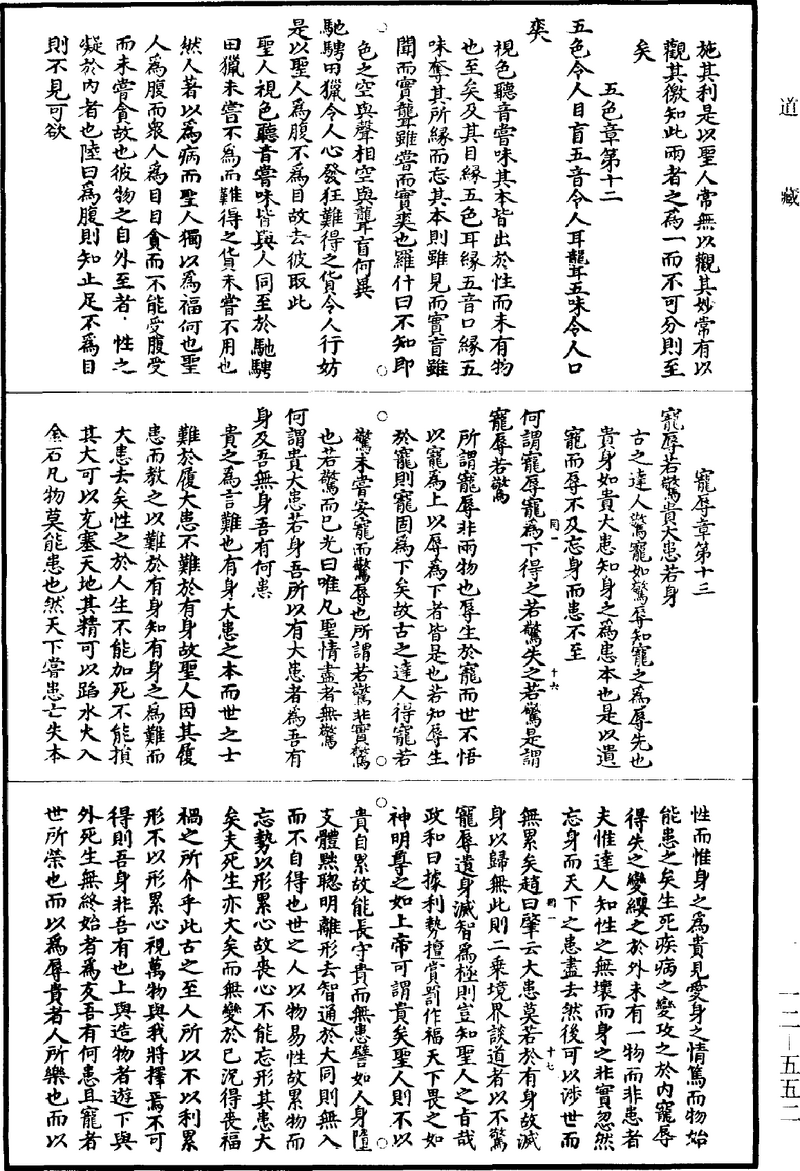 道藏
施其利是以聖人常無以觀其妙常有以
觀其徼知此兩者之為一而不可分則至
矣
五色章第十二
五色令人目盲五音令人耳聾五味令人口
爽
視色聽音嘗味其本皆出於性而未有物
也至矣及其目緣五色耳緣五音口緣五
味奪其所緣而忘其本則雖見而實盲雖
聞而實聾雖嘗而實爽也羅什曰不知即
色之空與聲相空與聾盲何異
馳騁田獵令人心發狂難得之貨令人行妨
是以聖人為腹不為目故去彼取此
聖人視色聽音嘗味皆與人同至於馳騁
田獵未嘗不為而難得之貨未嘗不用也
然人著以為病而聖人獨以為福何也聖
人為腹而衆人為目目貪而不能受腹受
而未嘗貪故也彼物之自外至者性之
凝於內者也陸曰為腹則知止足不為目
則不見可欲
寵辱章第十三
寵辱若驚貴大患若身
古之達人驚寵如驚辱知寵之為辱先也
貴身如貴大患知身之為患本也是以遺
寵而辱不及忘身而患不至
何謂寵辱寵為下得之若驚失之若驚是謂
寵辱若驚
所謂寵辱非兩物也辱生於寵而世不悟
以寵為上以辱為下者皆是也若知辱生
於寵則寵固為下矣故古之達人得寵若
驚未嘗安寵而驚辱也所謂若驚非實驚
也若驚而已光曰唯凡聖情盡者無驚
何謂貴大患若身吾所以有大患者為吾有
身及吾無身吾有何患
貴之為言難也有身大患之本而世之士
難於履大患不難於有身故聖人因其履
患而教之以難於有身知有身之為難而
大患去矣性之於人生不能加死不能損
其大可以充塞天地其精可以蹈水火入
金石凡物莫能患也然天下嘗患亡失本
性而惟身之為貴見愛身之情篤而物始
能患之矣生死疾病之變攻之於內寵辱
得失之變纓之於外未有一物而非患者
夫惟達人知性之無壞而身之非實忽然
忘身而天下之患盡去然後可以涉世而
無累矣趙曰肇云大患莫若於有身故滅
身以歸無此則二乘境界談道者以不驚
寵辱遺身滅智為極則豈知聖人之旨哉
政和曰據利勢擅賞罰作福天下畏之如
神明尊之如上帝可謂貴矣聖人則不以
貴自累故能長守貴而無患譬如人身墮
支體黜聰明離形去智通於大同則無入
而不自得也世之人以物易性故累物而
忘勢以形累心故喪心不能忘形其患大
矣夫死生亦大矣而無變於己況得喪禍
禍之所介乎此古之至人所以不以利累
形不以形累心視萬物與我將擇焉不可
得則吾身非吾有也上與造物者遊下與
外死生無終始者為友吾有何患且寵者
世所榮也而以為辱貴者人所樂也而以
一二—五五二